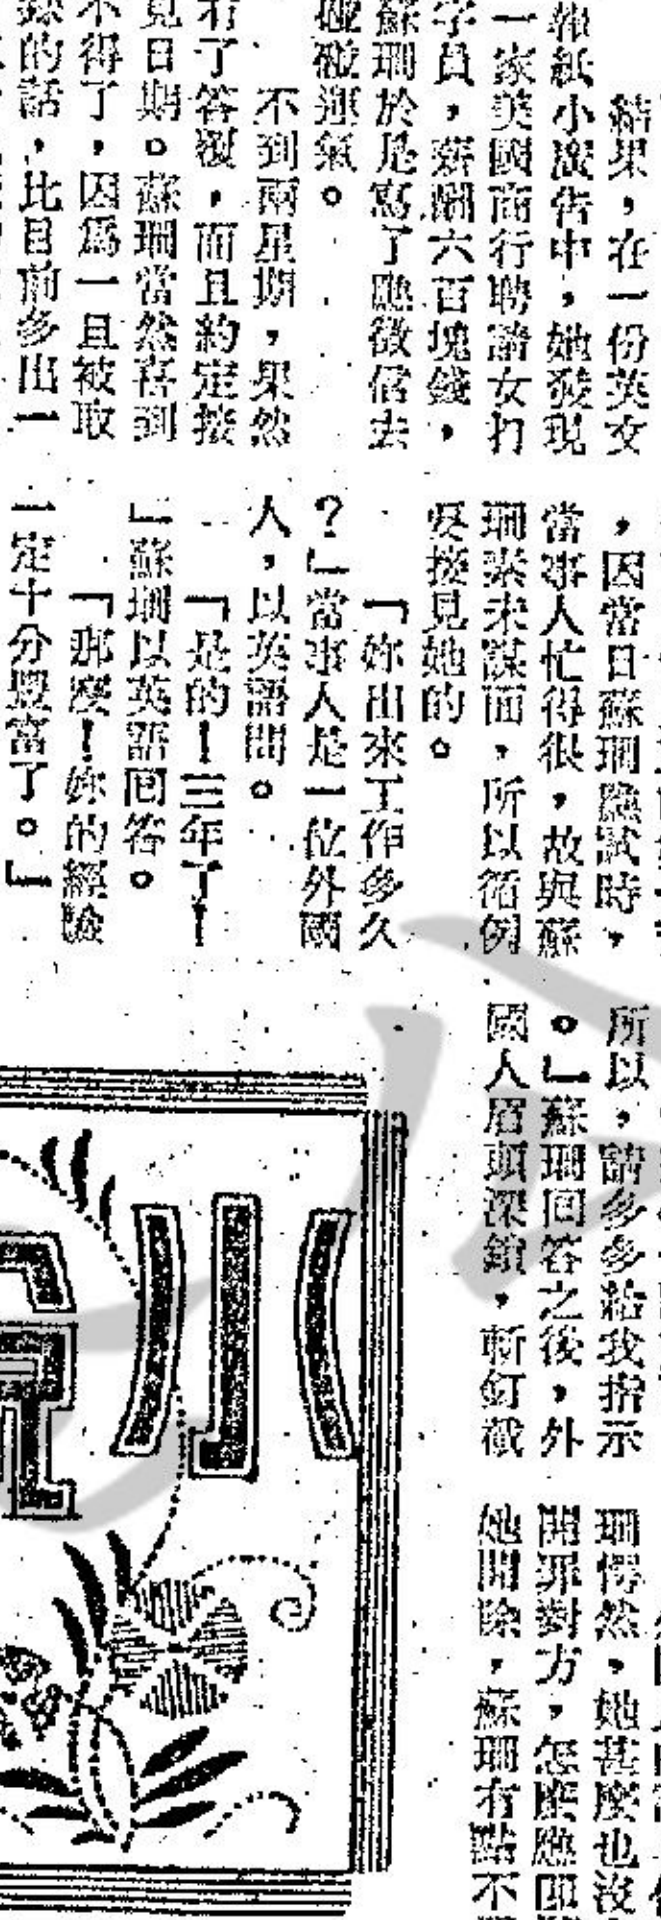 結果,在一份英文
報紙小廣告中,她發現
一家美國商行聘請女打
字員,薪酬六百塊錢,
蘇珊於是寫了應徵信去
碰碰運氣。
不到兩星期,果然
有了答覆,而且約定接
見日期。蘇珊當然喜到
不得了,因爲一旦被取
錄的話,比目前多出一
,因當日蘇珊應試時,
當事人忙得很,故與蘇
珊素未謀面,所以循例
要接見她的。
「妳出來工作多久
?」當事人是一位外國
人,以英語問。
「是的!三年了!
」蘇珊以英語回答。
「那麼!妳的經驗
一定十分豐富了。」
所以,請多多給我指示
。」蘇珊回答之後,外
國人眉頭深鎖,斬釘截
珊愕然,她甚麼也沒
開罪對方,怎麼應
她開除,蘇珊有點不